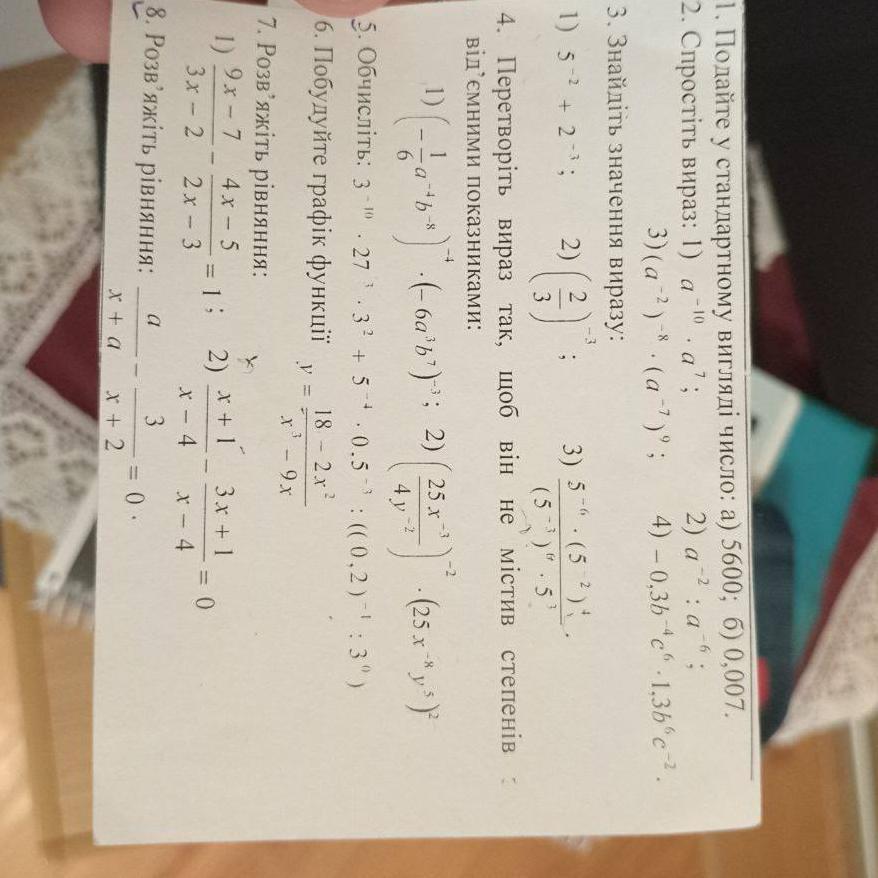 1. Подайте у стандартному вигляді число: а) 5600; б) 0,007.
2. Спростіть вираз: 1) a⁻¹⁰ · a⁷; 2) a⁻² : a⁻⁶;
3) (a⁻²)⁻⁸ · (a⁻⁷)⁹; 4) −0,3b⁻⁴c⁶ · 1,3b⁶c⁻².
3. Знайдіть значення виразу:
1) 5⁻² + 2⁻³; 2) (2/3)⁻³; 3) (5⁻⁶ · (5⁻²)⁴)/((5⁻³)⁶ · 5³).
4. Перетворіть вираз так, щоб він не містив степенів
від’ємними показниками:
1) (−1/6 a⁻⁴b⁻⁸)⁻⁴ · (−6a³b⁷)⁻³; 2) (25x⁻³/4y⁻²)⁻² · (25x⁻⁸y⁵)²
5. Обчисліть: 3⁻¹⁰ · 27³ · 3² + 5⁻⁴ · 0.5⁻³ : ((0,2)⁻¹ : 3⁰)
6. Побудуйте графік функції y = (18 − 2x²)/(x³ − 9x)
7. Розв’яжіть рівняння:
1) (9x − 7)/(3x − 2) − (4x − 5)/(2x − 3) = 1; 2) (x + 1)/(x − 4) − (3x + 1)/(x − 4) = 0
8. Розв’яжіть рівняння: a/(x + a) − 3/(x + 2) = 0.